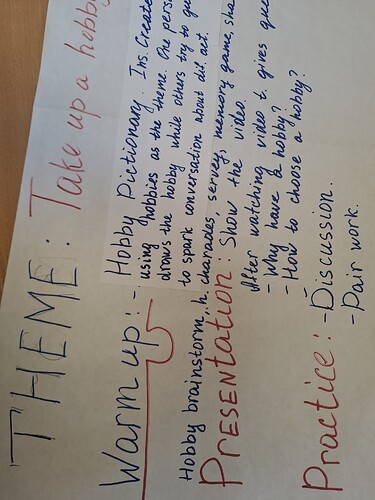 THEME: Take up a hobby
Warm up: - Hobby Pictionary. Ins. Create
using hobbies as the theme. One pers
draws the hobby while others try to gu
to spark conversation about dif. act.
Hobby brainstorm, h. charades, servey, memory game, sha
PRESENtation: Show the video.
After watching video t. gives que
- Why have a hobby?
- How to choose a hobby?
Practice: - Discussion.
- Pair work.